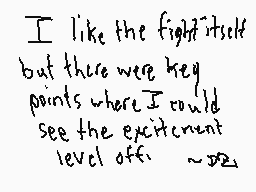 I like the fight itself
but there were key
points where I could
see the excitement
level off. ~DZ